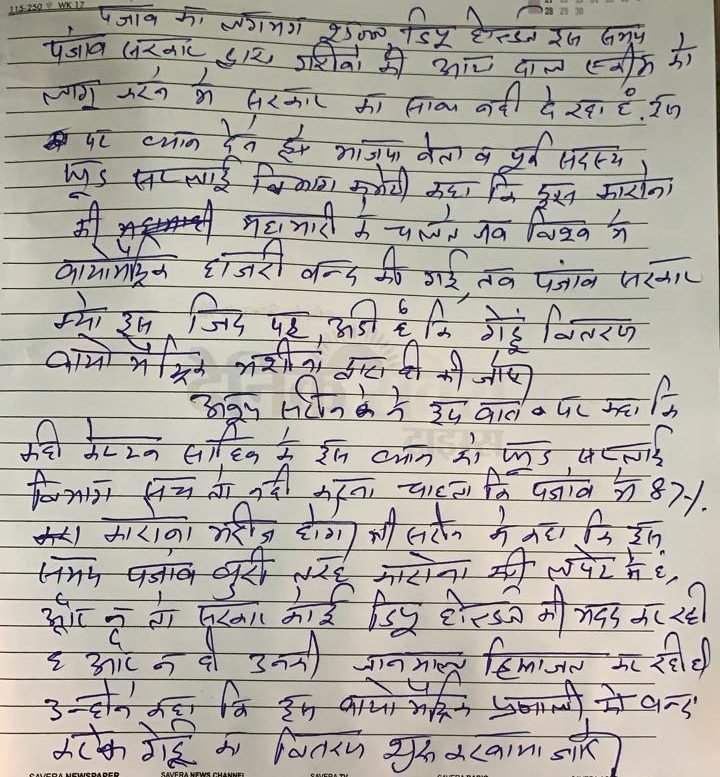 115-250 WK 17
28 29 30
पंजाब का लगभग डिपू होल्डर इस समय
पंजाब सरकार द्वारा गरीबों की आटा दाल स्कीम को
लागू करने में सरकार का साथ नहीं दे रहा है. इस
पर ध्यान देते हुए भाजपा नेता व पूर्व सदस्य
फूड सप्लाई विभाग कमेटी कहा कि इस कारोना
की महामारी के चलते जब विश्व में
बायोमैट्रिक हाजरी बन्द की गई, तब पंजाब सरकार
क्यों इस जिद पर अड़ी है कि गेहूं वितरण
बायोमैट्रिक मशीनों द्वारा ही की जाए
अनूप सरीन ने इस बात पर कहा कि
कहीं कैप्टन साहिब के इस ब्यान को फूड सप्लाई
विभाग सच तो नहीं करना चाहता कि पंजाब में 87%
कारोना मरीज होगा। श्री सरीन ने कहा कि इस
समय पंजाब बुरी तरह कारोना की लपेट में है,
और न तो सरकार कोई डिपू होल्डर की मदद कर रही
है और न ही उनकी जानमाल हिफाजत कर रही है
उन्होंने कहा कि इस बायोमैट्रिक प्रणाली को बन्द
करके गेहूं का वितरण शुरू करवाया जाए।
SAVERA NEWSPAPER SAVERA NEWS CHANNEL SAVERA TV SAVERA RADIO